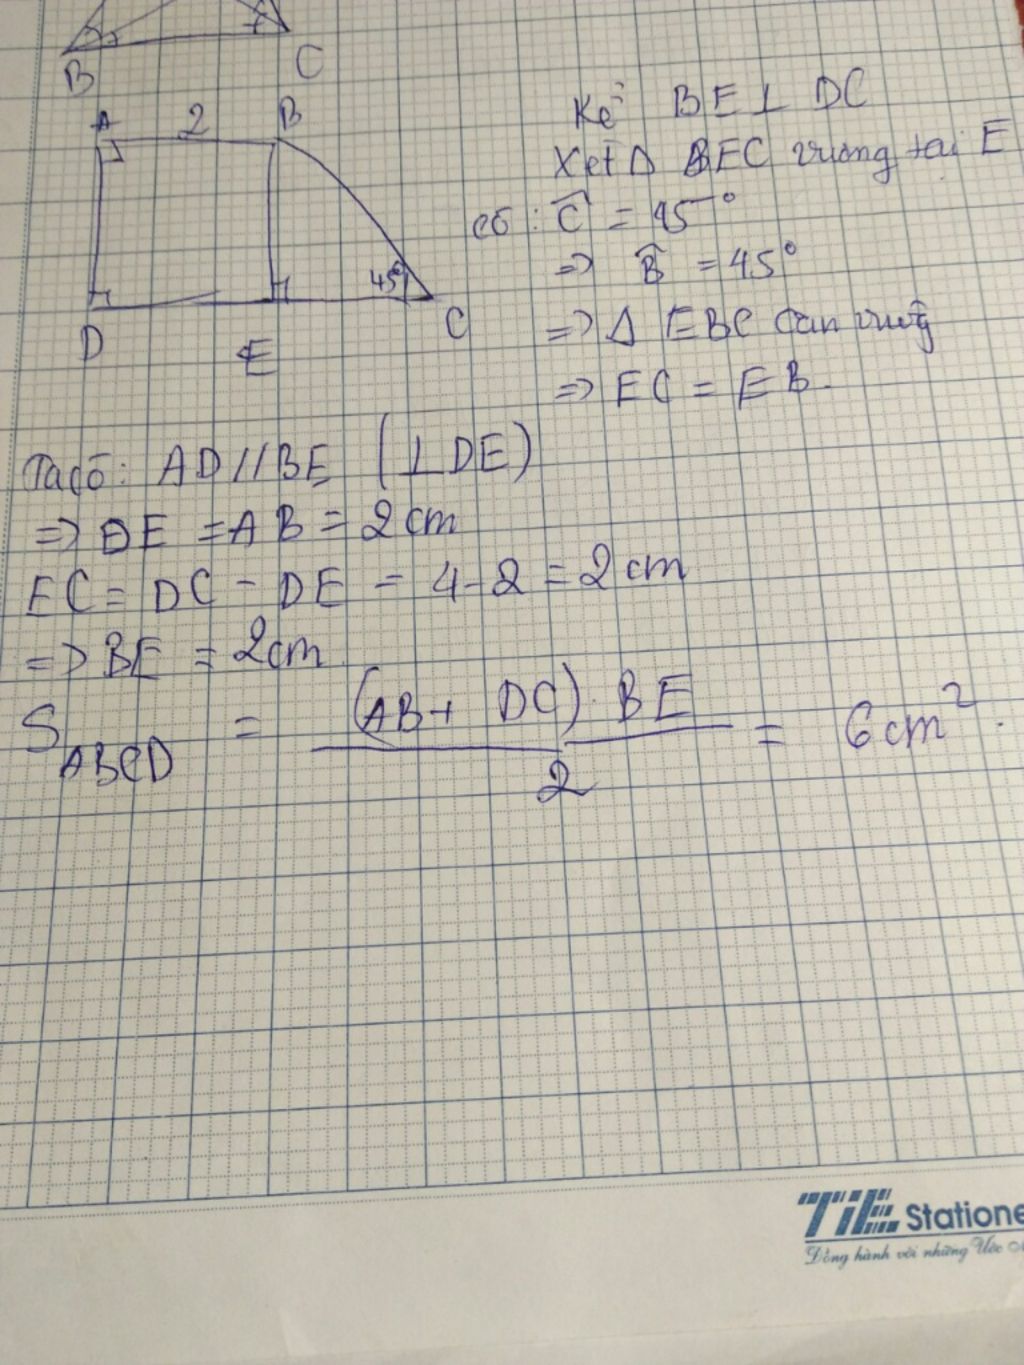 B C
A 2 B
45°
D E C
Kẻ BE ⊥ DC
Xét Δ BEC vuông tại E
có : Ĉ = 45°
=> B̂ = 45°
=> Δ EBC cân vuông
=> EC = EB.
Ta có: AD // BE (⊥ DE)
=> DE = AB = 2 cm
EC = DC - DE = 4 - 2 = 2 cm
=> BE = 2cm
S_ABCD = (AB + DC) . BE / 2 = 6 cm².
TiE Statione
Đồng hành với những Ước